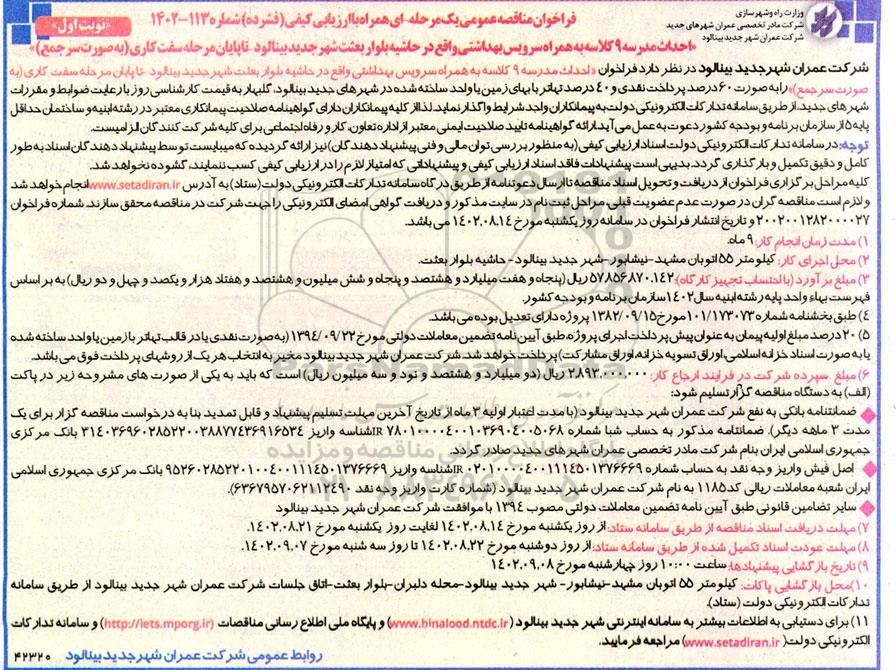 وزارت راه و شهرسازی
شرکت مادر تخصصی عمران شهرهای جدید
شرکت عمران شهر جدید بینالود
فراخوان مناقصه عمومی یک مرحله-ای همراه با ارزیابی کیفی (فشرده) شماره ۱۱۳-۱۴۰۲
«نوبت اول»
«احداث مدرسه ۹ کلاسه به همراه سرویس بهداشتی واقع در حاشیه بلوار بعثت شهر جدید بینالود - تا پایان مرحله سفت کاری (به صورت سرجمع)»
شرکت عمران شهر جدید بینالود در نظر دارد فراخوان «احداث مدرسه ۹ کلاسه به همراه سرویس بهداشتی واقع در حاشیه بلوار بعثت شهر جدید بینالود - تا پایان مرحله سفت کاری (به
صورت سرجمع)» را به صورت ۶۰ درصد پرداخت نقدی و ۴۰ درصد تهاتر با بهای زمین یا واحد ساخته شده در شهرهای جدید، گلبهار به قیمت کارشناسی روز با رعایت ضوابط و مقررات
شهرهای جدید، از طریق سامانه تدارکات الکترونیکی دولت به پیمانکاران واجد شرایط واگذار نماید. لذا از کلیه پیمانکاران دارای گواهینامه صلاحیت پیمانکاری معتبر در رشته ابنیه و ساختمان حداقل
پایه ۵ از سازمان برنامه و بودجه کشور دعوت به عمل می آید. ارائه گواهینامه تایید صلاحیت ایمنی معتبر از اداره تعاون، کار و رفاه اجتماعی برای کلیه شرکت کنندگان الزامیست.
توجه: در سامانه تدارکات الکترونیکی دولت اسناد ارزیابی کیفی (به منظور بررسی توان مالی و فنی پیشنهاد دهندگان) نیز ارائه گردیده که میبایست توسط پیشنهاد دهندگان اسناد به طور
کامل و دقیق تکمیل و بارگذاری گردد. بدیهی است پیشنهادات فاقد اسناد ارزیابی کیفی و پیشنهاداتی که امتیاز لازم را در ارزیابی کیفی کسب ننمایند، گشوده نخواهد شد.
کلیه مراحل برگزاری فراخوان از دریافت و تحویل اسناد مناقصه تا ارسال دعوتنامه از طریق درگاه سامانه تدارکات الکترونیکی دولت (ستاد) به آدرس www.setadiran.ir انجام خواهد شد
و لازم است مناقصه گران در صورت عدم عضویت قبلی، مراحل ثبت نام در سایت مذکور و دریافت گواهی امضای الکترونیکی را جهت شرکت در مناقصه محقق سازند. شماره فراخوان
۲۰۰۲۰۰۱۲۸۲۰۰۰۰۲۷ و تاریخ انتشار فراخوان در سامانه روز یکشنبه مورخ ۱۴۰۲.۰۸.۱۴ می باشد.
۱) مدت زمان انجام کار: ۹ ماه.
۲) محل اجرای کار: کیلومتر ۵۵ اتوبان مشهد-نیشابور-شهر جدید بینالود- حاشیه بلوار بعثت.
۳) مبلغ برآورد (با احتساب تجهیز کارگاه): ۵۷.۸۵۶۸۷۰.۱۴۲ ریال (پنجاه و هفت میلیارد و هشتصد و پنجاه و شش میلیون و هشتصد و هفتاد هزار و یکصد و چهل و دو ریال) به بر اساس
فهرست بهاء واحد پایه رشته ابنیه سال ۱۴۰۲ سازمان برنامه و بودجه کشور.
۴) طبق بخشنامه شماره ۱۰۱/۱۷۳۰۷۳ مورخ ۱۳۸۲/۰۹/۱۵ پروژه دارای تعدیل بوده می باشد.
۵) ۲۰ درصد مبلغ اولیه پیمان به عنوان پیش پرداخت اجرای پروژه، طبق آیین نامه تضمین معاملات دولتی مورخ ۱۳۹۴/۰۹/۲۲ (به صورت نقدی یا در قالب تهاتر با زمین یا واحد ساخته شده
یا به صورت اسناد خزانه اسلامی، اوراق تسویه خزانه، اوراق مشارکت) پرداخت خواهد شد. شرکت عمران شهر جدید بینالود مخیر به انتخاب هر یک از روشهای پرداخت فوق می باشد.
۶) مبلغ سپرده شرکت در فرایند ارجاع کار: ۲.۸۹۳.۰۰۰.۰۰۰ ریال (دو میلیارد و هشتصد و نود و سه میلیون ریال) است که باید به یکی از صورت های مشروحه زیر در پاکت
(الف) به دستگاه مناقصه گزار تسلیم شود:
ضمانتنامه بانکی به نفع شرکت عمران شهر جدید بینالود (با مدت اعتبار اولیه ۳ ماه از تاریخ آخرین مهلت تسلیم پیشنهاد و قابل تمدید بنا به درخواست مناقصه گزار برای یک
مدت ۳ ماهه دیگر). ضمانتنامه مذکور به حساب شبا شماره IR ۷۸۰۱۰۰۰۰۴۰۰۱۰۳۶۹۰۴۰۰۵۰۶۸ شناسه واریز ۳۱۴۰۳۶۹۶۰۲۸۵۲۲۰۰۳۸۸۷۷۴۳۶۹۱۶۵۳۴ بانک مرکزی
جمهوری اسلامی ایران بنام شرکت مادر تخصصی عمران شهرهای جدید صادر گردد.
اصل فیش واریز وجه نقد به حساب شماره IR ۰۲۰۱۰۰۰۰۴۰۰۱۱۱۴۵۰۱۳۷۶۶۶۹ شناسه واریز ۹۵۲۶۰۲۸۵۲۲۰۱۰۰۴۰۰۱۱۱۴۵۰۱۳۷۶۶۶۹ بانک مرکزی جمهوری اسلامی
ایران شعبه معاملات ریالی کد ۱۱۸۵ به نام شرکت عمران شهر جدید بینالود (شماره کارت واریز وجه نقد ۶۳۶۷۹۵۷۰۶۲۱۱۲۴۹۰).
سایر تضامین قانونی طبق آیین نامه تضمین معاملات دولتی مصوب ۱۳۹۴ با موافقت شرکت عمران شهر جدید بینالود
۷) مهلت دریافت اسناد مناقصه از طریق سامانه ستاد: از روز یکشنبه مورخ ۱۴۰۲.۰۸.۱۴ لغایت روز یکشنبه مورخ ۱۴۰۲.۰۸.۲۱.
۸) مهلت عودت اسناد تکمیل شده از طریق سامانه ستاد: از روز دوشنبه مورخ ۱۴۰۲.۰۸.۲۲ تا روز سه شنبه مورخ ۱۴۰۲.۰۹.۰۷.
۹) تاریخ بازگشایی پیشنهادها: ساعت ۱۰:۰۰ روز چهارشنبه مورخ ۱۴۰۲.۰۹.۰۸
۱۰) محل بازگشایی پاکات: کیلومتر ۵۵ اتوبان مشهد-نیشابور- شهر جدید بینالود-محله دلبران-بلوار بعثت-اتاق جلسات شرکت عمران شهر جدید بینالود از طریق سامانه
تدارکات الکترونیکی دولت (ستاد).
۱۱) برای دستیابی به اطلاعات بیشتر به سامانه اینترنتی شهر جدید بینالود (www.binalood.ntdc.ir) و پایگاه ملی اطلاع رسانی مناقصات (http://iets.mporg.ir) و سامانه تدارکات
الکترونیکی دولت (www.setadiran.ir) مراجعه فرمایید.
روابط عمومی شرکت عمران شهر جدید بینالود
۴۲۳۲۰